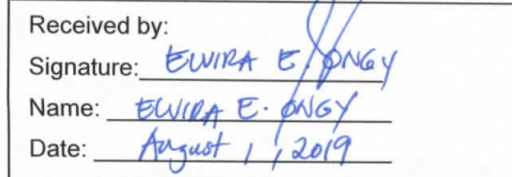 Received by:
Signature: ELVIRA E. ONGY
Name: ELVIRA E. ONGY
Date: August 1, 2019